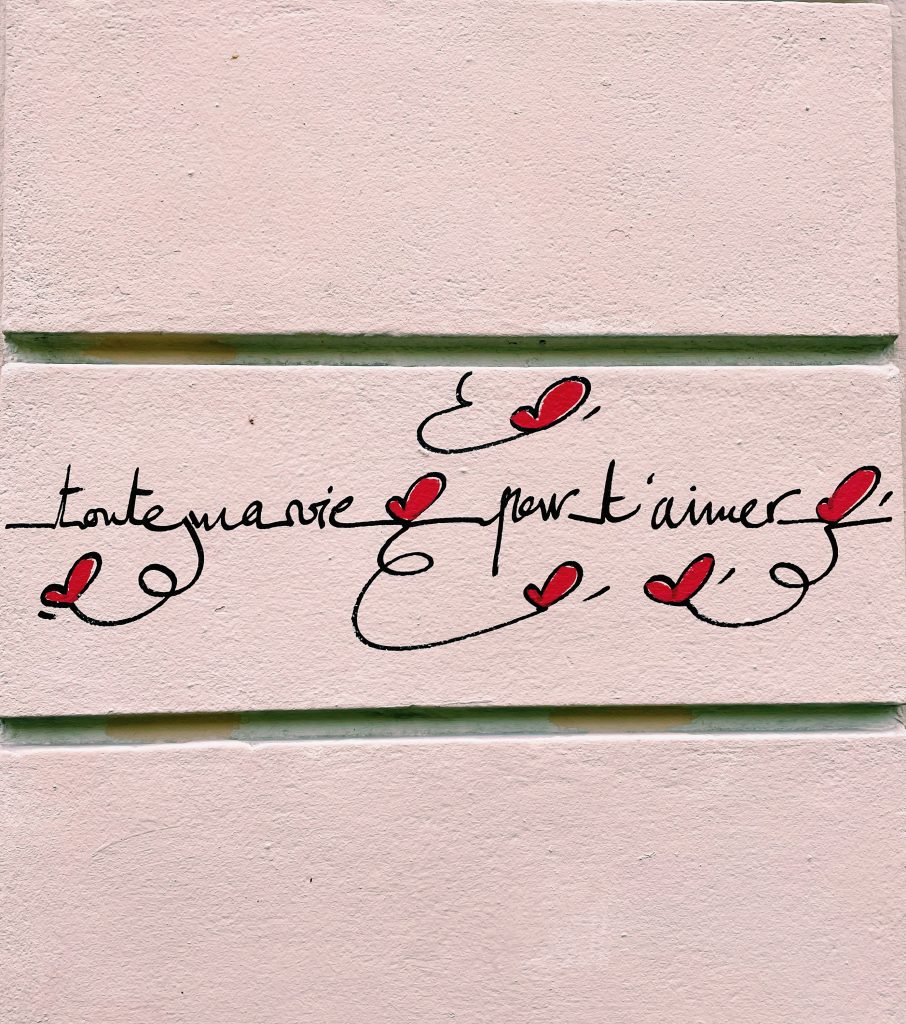 toute ma vie pour t'aimer